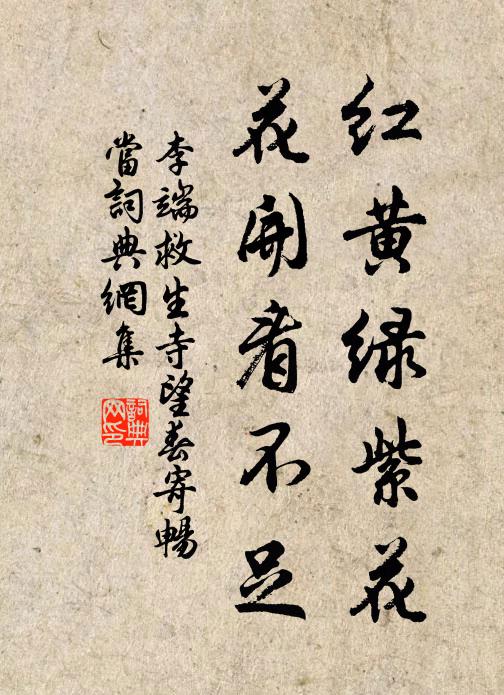 红黄绿紫花
花開看不足
李端救生寺望春寄暢
當詞典網集
詞典
网印